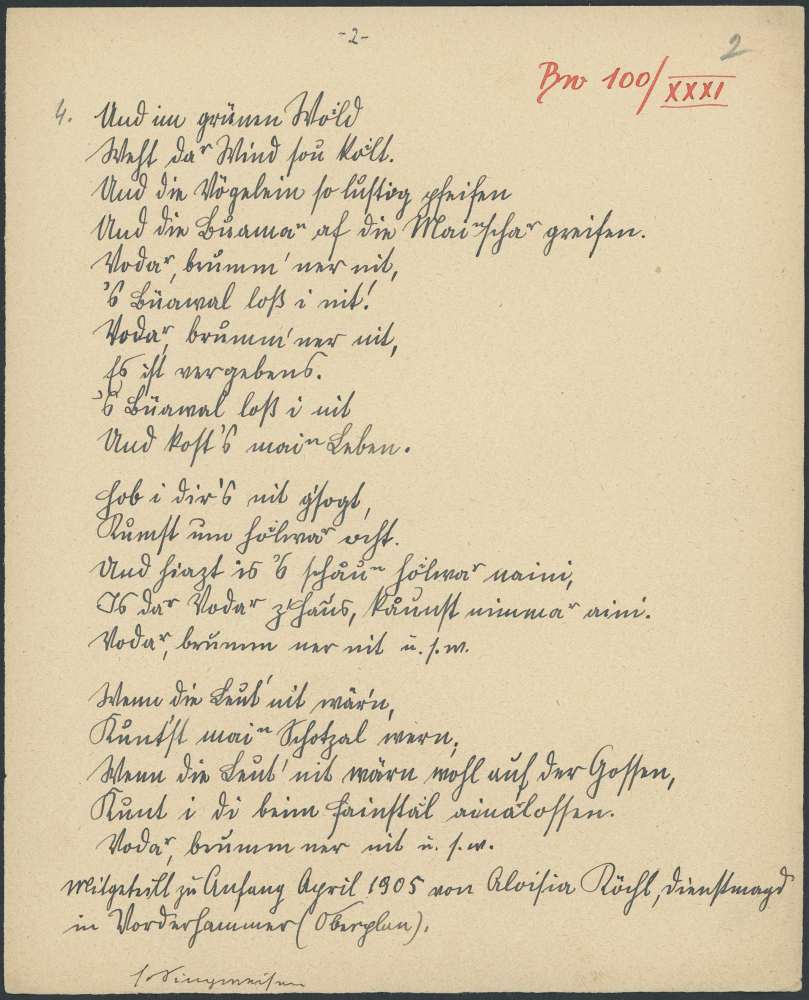 -2-
2
Bw 100/XXXI
4. Und im grünen Wold
Weht daʳ Wind sou kolt.
Und die Vögelein so lustig pfeifen
Und die Buamaⁿ af die Maiⁿschaʳ greifen.
Vodaʳ, brumm' ner nit,
's Büawal loß i nit!
Vodaʳ, brumm' ner nit,
Es ist vergebens.
's Büawal loß i nit
Und kost's maiⁿ Leben.
Hob i dir's nit g'sogt,
Kumst um holwaʳ ocht.
Und hiazt is 's schåuⁿ hålwaʳ naini,
Is daʳ Vodaʳ z'Haus, kåunst nimmaʳ aini.
Vodaʳ, brumm ner nit u. s. w.
Wenn die Leut' nit wär'n,
Kunt'st maiⁿ Schotzal wern,
Wenn die Leut' nit wärn wohl auf der Gossen,
Kunt i di beim Fainstal ainalossen.
Vodaʳ, brumm ner nit u. s. w.
Mitgeteilt zu Anfang April 1905 von Aloisia Röchl, Dienstmagd
in Vorderhammer (Oberplan).
s. Singweisen